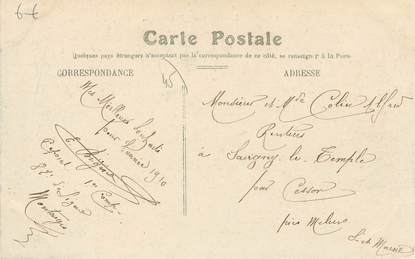 6€
Carte Postale
Quelques pays étrangers n'acceptant pas la correspondance de ce côté, se renseigner à la Poste
CORRESPONDANCE
45
ADRESSE
Mes Meilleurs Souhaits
pour l'année 1910
Caporal 1re Comp
82e de Ligne
Montargis
Monsieur et Mde Colin Alfred
Rentiers
à Savigny-le-Temple
pour Cesson
près Melun
S. et Marne